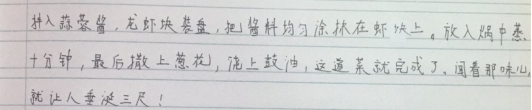 拌入蒜蓉酱，龙虾块装盘，把酱料均匀涂抹在虾块上。放入锅中蒸
十分钟，最后撒上葱花，浇上豉油，这道菜就完成了。闻着那味儿
就让人垂涎三尺！